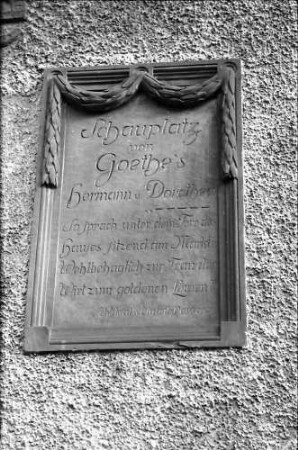 Schauplatz
von
Goethe's
Hermann u. Dorothea
So sprach unter dem Thore
Hauses sitzend am Markte
Wohlbehaglich zur Frau
Wirt zum goldenen Löwen